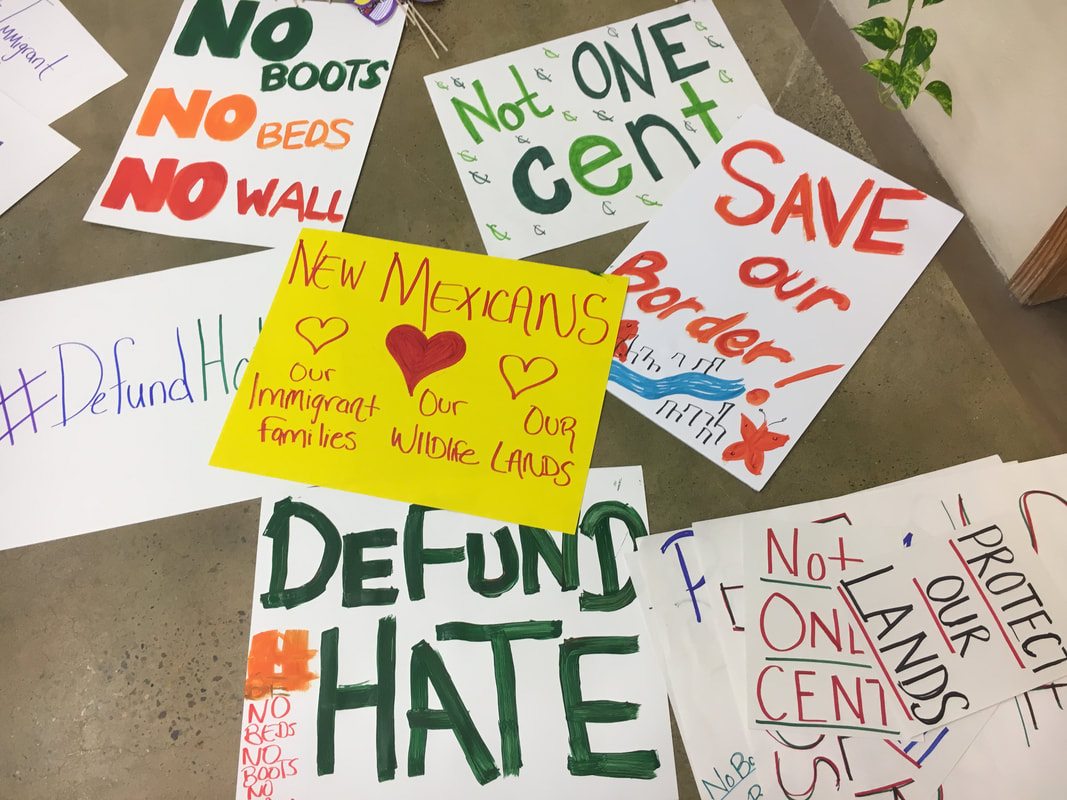 Immigrant
NO
BOOTS
NO BEDS
NO WALL
Not ONE
cent
SAVE
our
Border!
#Defund
NEW MEXICANS
Our
Immigrant
families
Our
WilDlife
OUR
LANDS
DeFUND
#HATE
NO
BEDS
NO
BOOTS
NO
Not
ONE
CENT
PROTECT
OUR
LANDS